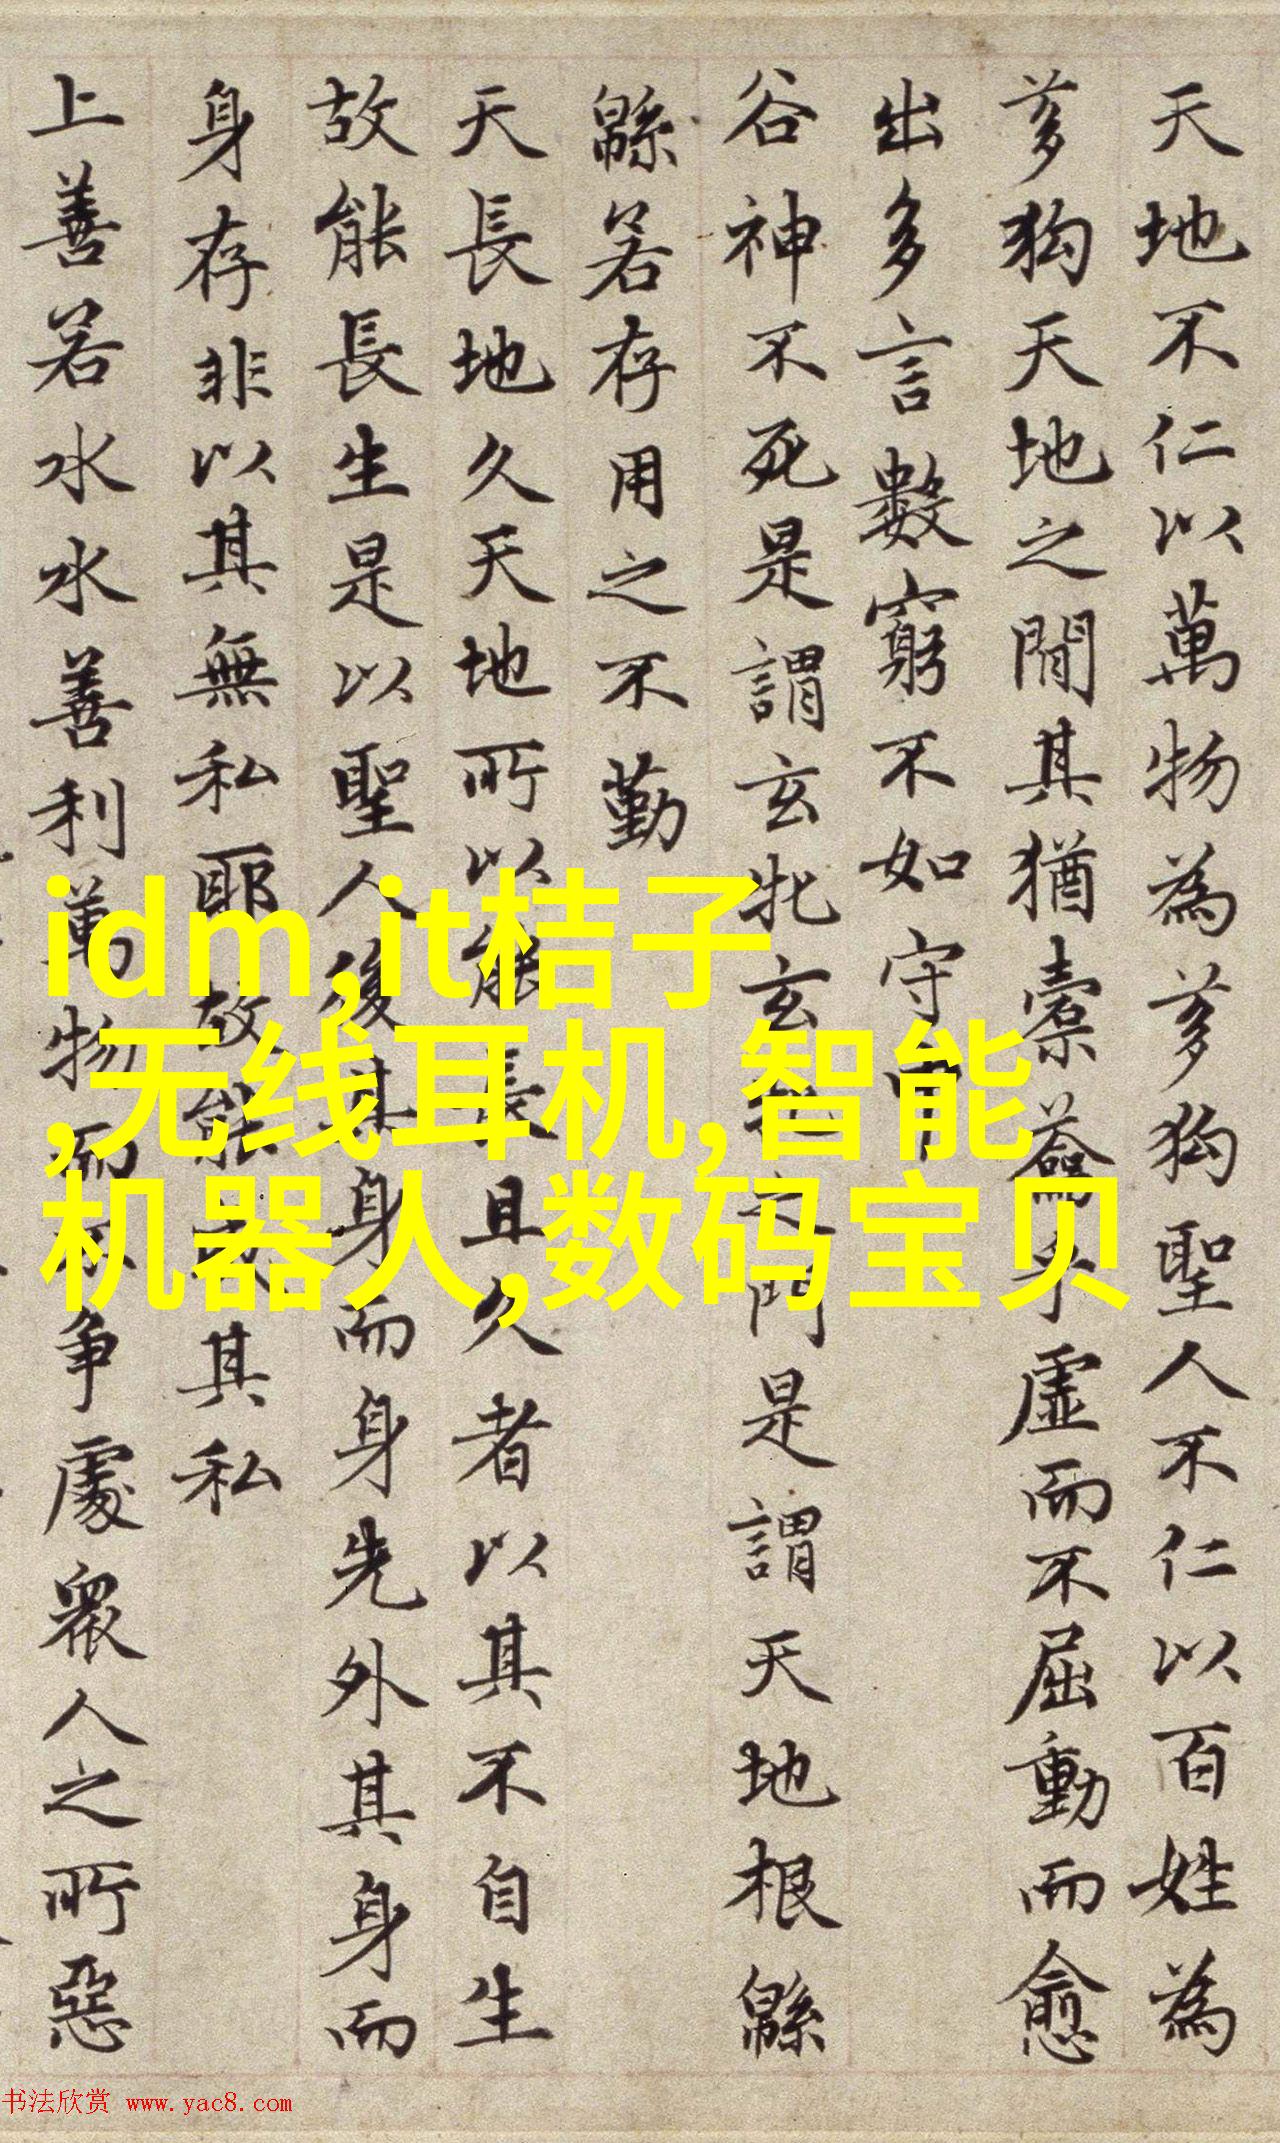 天地不仁以萬物為芻狗聖人不仁以百姓為
芻狗天地之間其猶橐籥乎虛而不屈動而愈
出多言數窮不如守中
谷神不死是謂玄牝玄牝之門是謂天地根緜
緜若存用之不勤
天長地久天地所以能長且久者以其不自生
故能長生是以聖人後其身而身先外其身而
身存非以其無私耶故能成其私
上善若水水善利萬物而不争處衆人之所惡
idm,it桔子
,无线耳机,智能
机器人,数码宝贝
书法欣赏 www.yac8.com